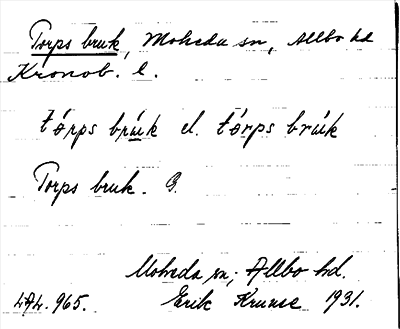 Torps bruk, Moheda sn, Allbo hd
Kronob. l.
tórps brúk el. tórps brúk
Torps bruk. G.
Moheda sn; Allbo hd.
Erik Krusse 1931.
LAL. 965.